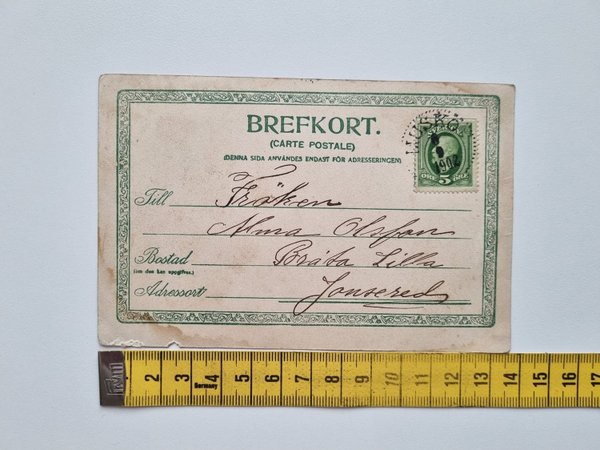 BREFKORT.
(CARTE POSTALE)
(DENNA SIDA ANVÄNDES ENDAST FÖR ADRESSERINGEN)
MUSKÖ
9
1902
ÖRE 5 ÖRE
Till Fröken
Alma Olsson
Bostad Bråta Lilla
(om den kan uppgifvas.)
Adressort Jonsered
1 2 3 4 5 6 7 8 9 10 11 12 13 14 15 16 17
Germany